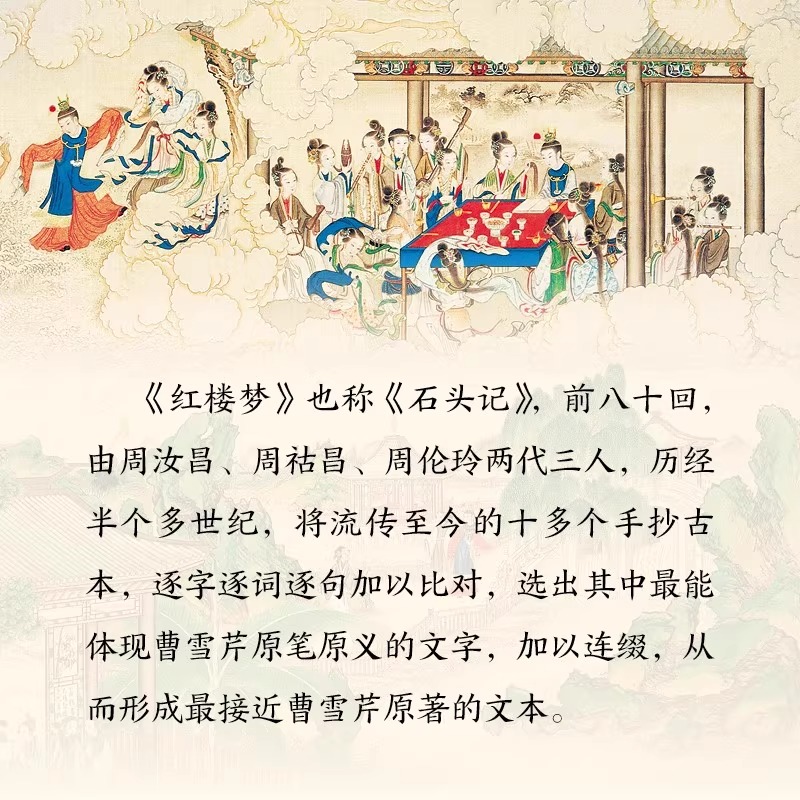 《红楼梦》也称《石头记》，前八十回，
由周汝昌、周祜昌、周伦玲两代三人，历经
半个多世纪，将流传至今的十多个手抄古
本，逐字逐词逐句加以比对，选出其中最能
体现曹雪芹原笔原义的文字，加以连缀，从
而形成最接近曹雪芹原著的文本。